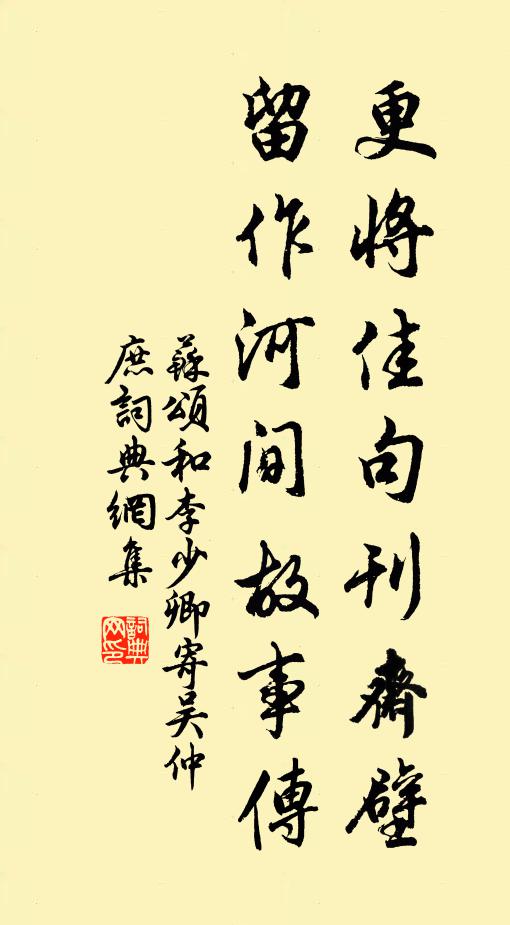 更將佳句刊齋壁
留作河間故事傳
蘇頌和李少卿寄吳仲
庶詞典網集
詞典網印